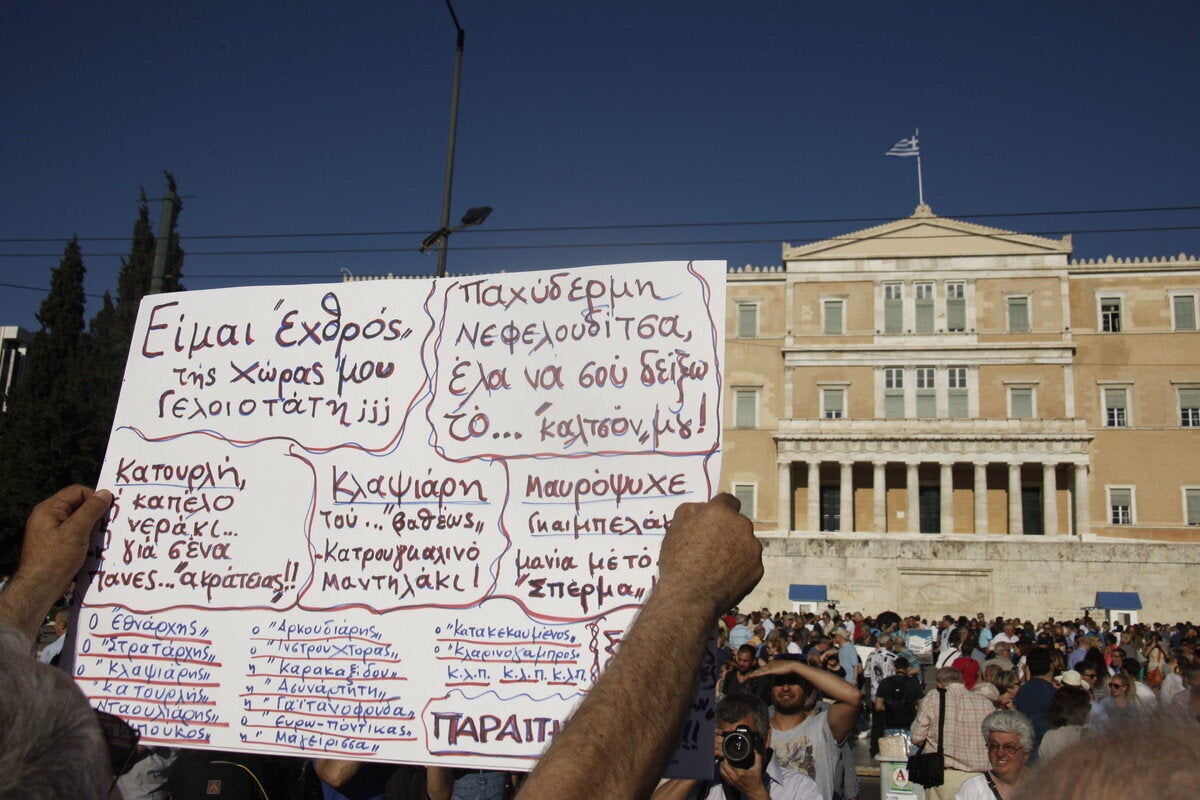 Είμαι "Εχθρός"
τής Χώρας μου
Γελοιοτάτη ¡¡¡
Παχύδερμη
Νεφελουδίτσα,
έλα νά σού δείξω
τό... "καλτσόν" μȣ!
Κατουρλή,
καπέλο
νεράκι...
γιά σένα
πάνες... "ακράτειας"!!
Κλαψιάρη
τού... "βαθέως"
-Κατρουγκαλινό
Μαντηλάκι!
Μαυρόψυχε
Γκαιμπελά
μανία μέ τό
"Σπέρμα"
ο "Εθνάρχης"
ο "Στρατάρχης"
ο "Κλαψιάρης"
"Κατουρλής"
Νταουλιάρης"
ο "Αρκουδιάρης"
ο "Ινστρουχτορας"
η "Καρακαξίδου"
η "Ασυνάρτητη"
η "Γαϊτανοφρύδα"
ο "Ευρω-πόντικας"
η "Μαγειρισσα"
ο "Κατακεκαυμένος"
ο "Κλαρινογαμπρος"
κ.λ.π. κ.λ.π. κ.λ.π.
A